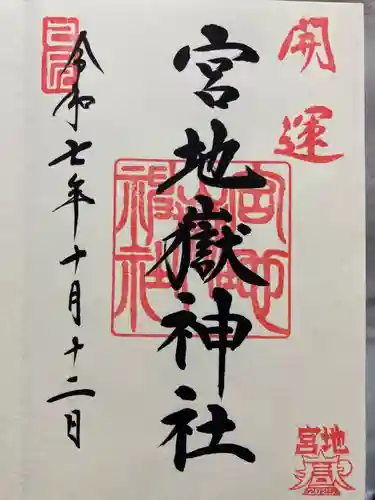 開運
宮地嶽神社
令和七年十月十二日
宮地嶽神社
宮地